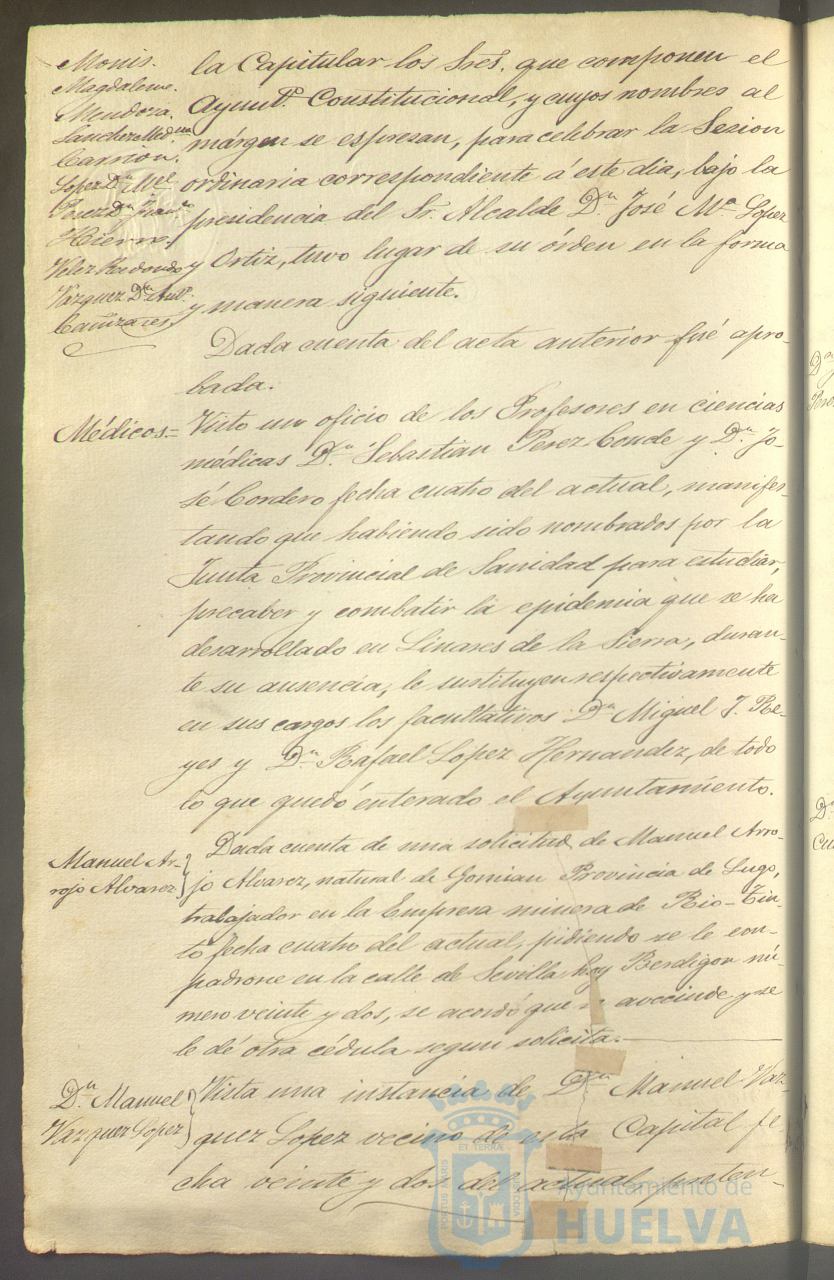 Monis.
Magdalena.
Mendoza.
Sanchez Med.na
Carrion.
Lopez D.n M.l
Perez D.n Fran.co
Hierro.
Velez Redondo
Vazquez D.n Ant.o
Cañizares
la Capitular los Sres. que componen el
Ayunt.o Constitucional, y cuyos nombres al
márgen se espresan, para celebrar la Sesion
ordinaria correspondiente á este dia, bajo la
presidencia del Sr. Alcalde D.n José M.a Lopez
y Ortiz, tuvo lugar de su órden en la forma
y manera siguiente.
Dada cuenta del acta anterior fué apro-
bada.
Médicos=
Visto un oficio de los Profesores en ciencias
médicas D.n Sebastian Perez Conde y D.n Jo-
sé Cordero fecha cuatro del actual, manifes-
tando que habiendo sido nombrados por la
Junta Provincial de Sanidad para estudiar,
precaber y combatir la epidemia que se ha
desarrollado en Linares de la Sierra, duran-
te su ausencia, le sustituyen respectivamente
en sus cargos los facultativos D.n Miguel J. Re-
yes y D.n Rafael Lopez Hernandez, de todo
lo que quedó enterado el Ayuntamiento.
Manuel Ar-
rojo Alvarez
Dada cuenta de una solicitud de Manuel Arro-
jo Alvarez, natural de Gomian Provincia de Lugo,
trabajador en la Empresa minera de Rio-Tin-
to fecha cuatro del actual, pidiendo se le em-
padrone en la calle de Sevilla hoy Berdigon nú-
mero veinte y dos, se acordó que se avecinde y se
le dé otra cédula segun solicita.
D.n Manuel
Vazquez Lopez
Vista una instancia de D.n Manuel Vaz-
quez Lopez vecino de esta Capital fe-
cha veinte y dos del actual, preten-
Ayuntamiento de
HUELVA